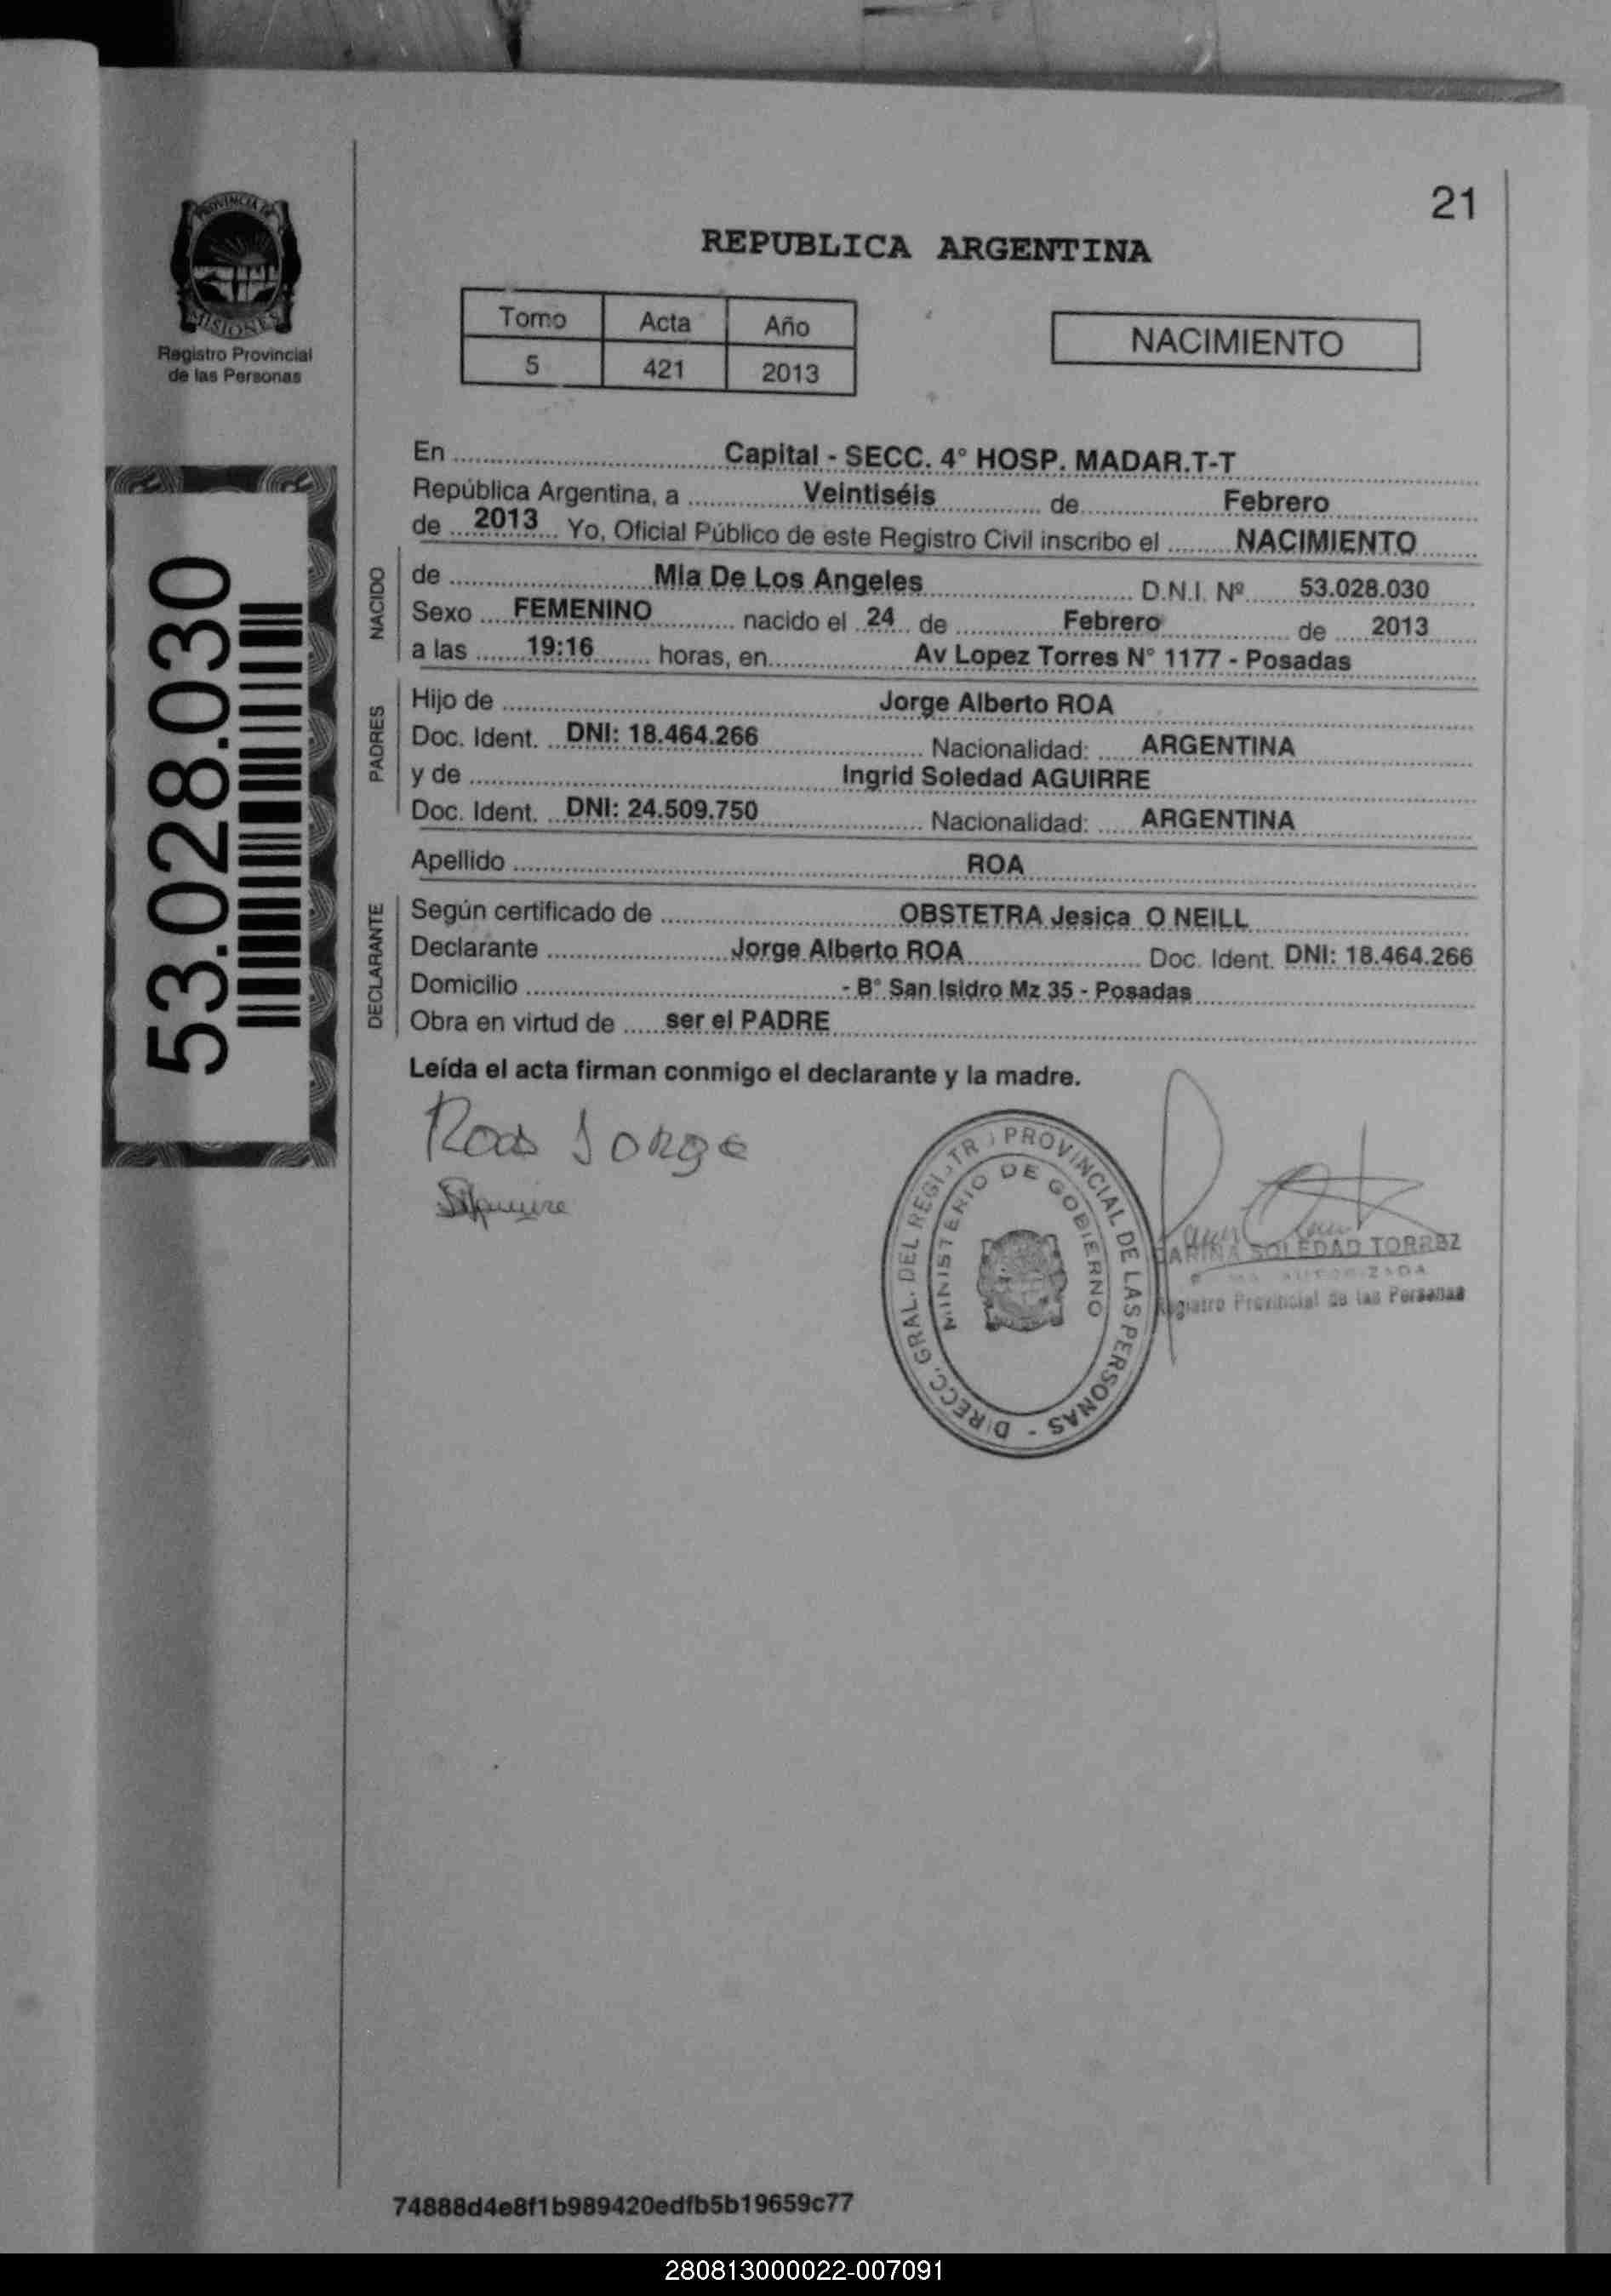 21
PROVINCIA DE
MISIONES
Registro Provincial
de las Personas
REPUBLICA ARGENTINA
Tomo Acta Año
5 421 2013
NACIMIENTO
53.028.030
En Capital - SECC. 4° HOSP. MADAR.T-T
República Argentina, a Veintiséis de Febrero
de 2013 Yo, Oficial Público de este Registro Civil inscribo el NACIMIENTO
NACIDO
de Mia De Los Angeles D.N.I. Nº 53.028.030
Sexo FEMENINO nacido el 24 de Febrero de 2013
a las 19:16 horas, en Av Lopez Torres N° 1177 - Posadas
PADRES
Hijo de Jorge Alberto ROA
Doc. Ident. DNI: 18.464.266 Nacionalidad: ARGENTINA
y de Ingrid Soledad AGUIRRE
Doc. Ident. DNI: 24.509.750 Nacionalidad: ARGENTINA
Apellido ROA
DECLARANTE
Según certificado de OBSTETRA Jesica O NEILL
Declarante Jorge Alberto ROA Doc. Ident. DNI: 18.464.266
Domicilio - B° San Isidro Mz 35 - Posadas
Obra en virtud de ser el PADRE
Leída el acta firman conmigo el declarante y la madre.
Roa Jorge
DIRECC. GRAL. DEL REGISTRO PROVINCIAL DE LAS PERSONAS -
MINISTERIO DE GOBIERNO
SOLEDAD TORREZ
Registro Provincial de las Personas
74888d4e8f1b989420edfb5b19659c77
280813000022-007091